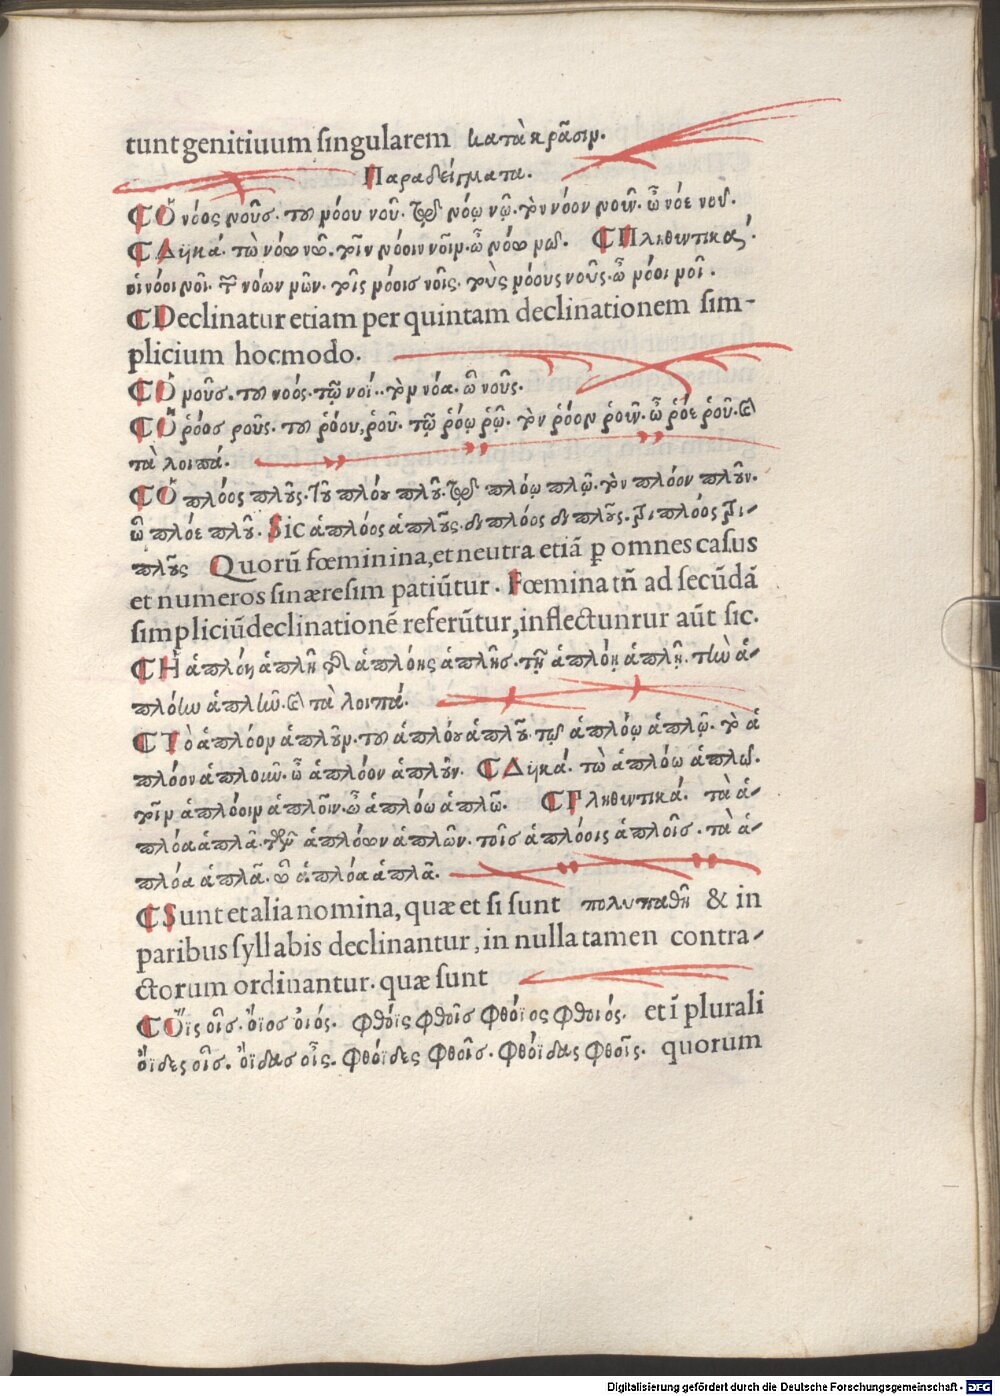 tunt genitiuum singularem κατὰ κρᾶσιν.
Παραδείγματα.
¶ Ὁ νόος νοῦσ. τοῦ νόου νοῦ. τῷ νόῳ νῷ. τὸν νόον νοῦν. ὦ νόε νοῦ.
¶ Δυϊκά. τὼ νόω νῶ. τοῖν νόοιν νοῖν. ὦ νόω νῶ. ¶ Πληθυντικά.
οἱ νόοι νοῖ. τῶν νόων νῶν. τοῖς νόοισ νοῖς. τοὺς νόους νοῦς. ὦ νόοι νοῖ.
¶ Declinatur etiam per quintam declinationem sim-
plicium hocmodo.
¶ Ὁ νοῦσ. τοῦ νοός. τῷ νοί. τὸν νόα. ὦ νοῦς.
¶ Ὁ ῥόοσ ροῦς. τοῦ ῥόου, ῥοῦ. τῷ ῥόῳ ῥῷ. τὸν ῥόον ῥοῦν. ὦ ῥόε ῥοῦ. καὶ
τὰ λοιπά.
¶ Ὁ πλόος πλοῦς. τοῦ πλόου πλοῦ. τῷ πλόῳ πλῷ. τὸν πλόον πλοῦν.
ὦ πλόε πλοῦ. Sic ἁπλόος ἁπλοῦς. διπλόος διπλοῦς. τριπλόος τρι-
πλοῦς Quorū fœminina, et neutra etiā ꝑ omnes casus
et numeros sinæresim patiūtur. Fœmina tñ ad secūdā
simpliciū declinationē referūtur, inflectunrur aūt sic.
¶ Ἡ ἁπλόη ἁπλῆ τῆς ἁπλόης ἁπλῆς. τῇ ἁπλόῃ ἁπλῇ. τὴν ἁ-
πλόην ἁπλῆν. καὶ τὰ λοιπά.
¶ Τὸ ἁπλόον ἁπλοῦν. τοῦ ἁπλόου ἁπλοῦ. τῷ ἁπλόῳ ἁπλῷ. τὸ ἁ
πλόον ἁπλοῦν. ὦ ἁπλόον ἁπλοῦν. ¶ Δυϊκά. τὼ ἁπλόω ἁπλῶ.
τοῖν ἁπλόοιν ἁπλοῖν. ὦ ἁπλόω ἁπλῶ. ¶ Γληθυντικά. τὰ ἁ-
πλόα ἁπλᾶ. τῶν ἁπλόων ἁπλῶν. τοῖσ ἁπλόοις ἁπλοῖσ. τὰ ἁ-
πλόα ἁπλᾶ. ὦ ἁπλόα ἁπλᾶ.
¶ Sunt et alia nomina, quæ et si sunt πολυπαθῆ & in
paribus syllabis declinantur, in nulla tamen contra-
ctorum ordinantur. quæ sunt
¶ Ὄϊς οἶσ. ὄϊοσ οἰός. φθόϊς φθοῖσ φθόϊος φθοιός. et ī plurali
ὄϊδες οἶσ. ὄϊδασ οἶς. φθόϊδες φθοῖσ. φθόϊδας φθοῖς. quorum
Digitalisierung gefördert durch die Deutsche Forschungsgemeinschaft - DFG